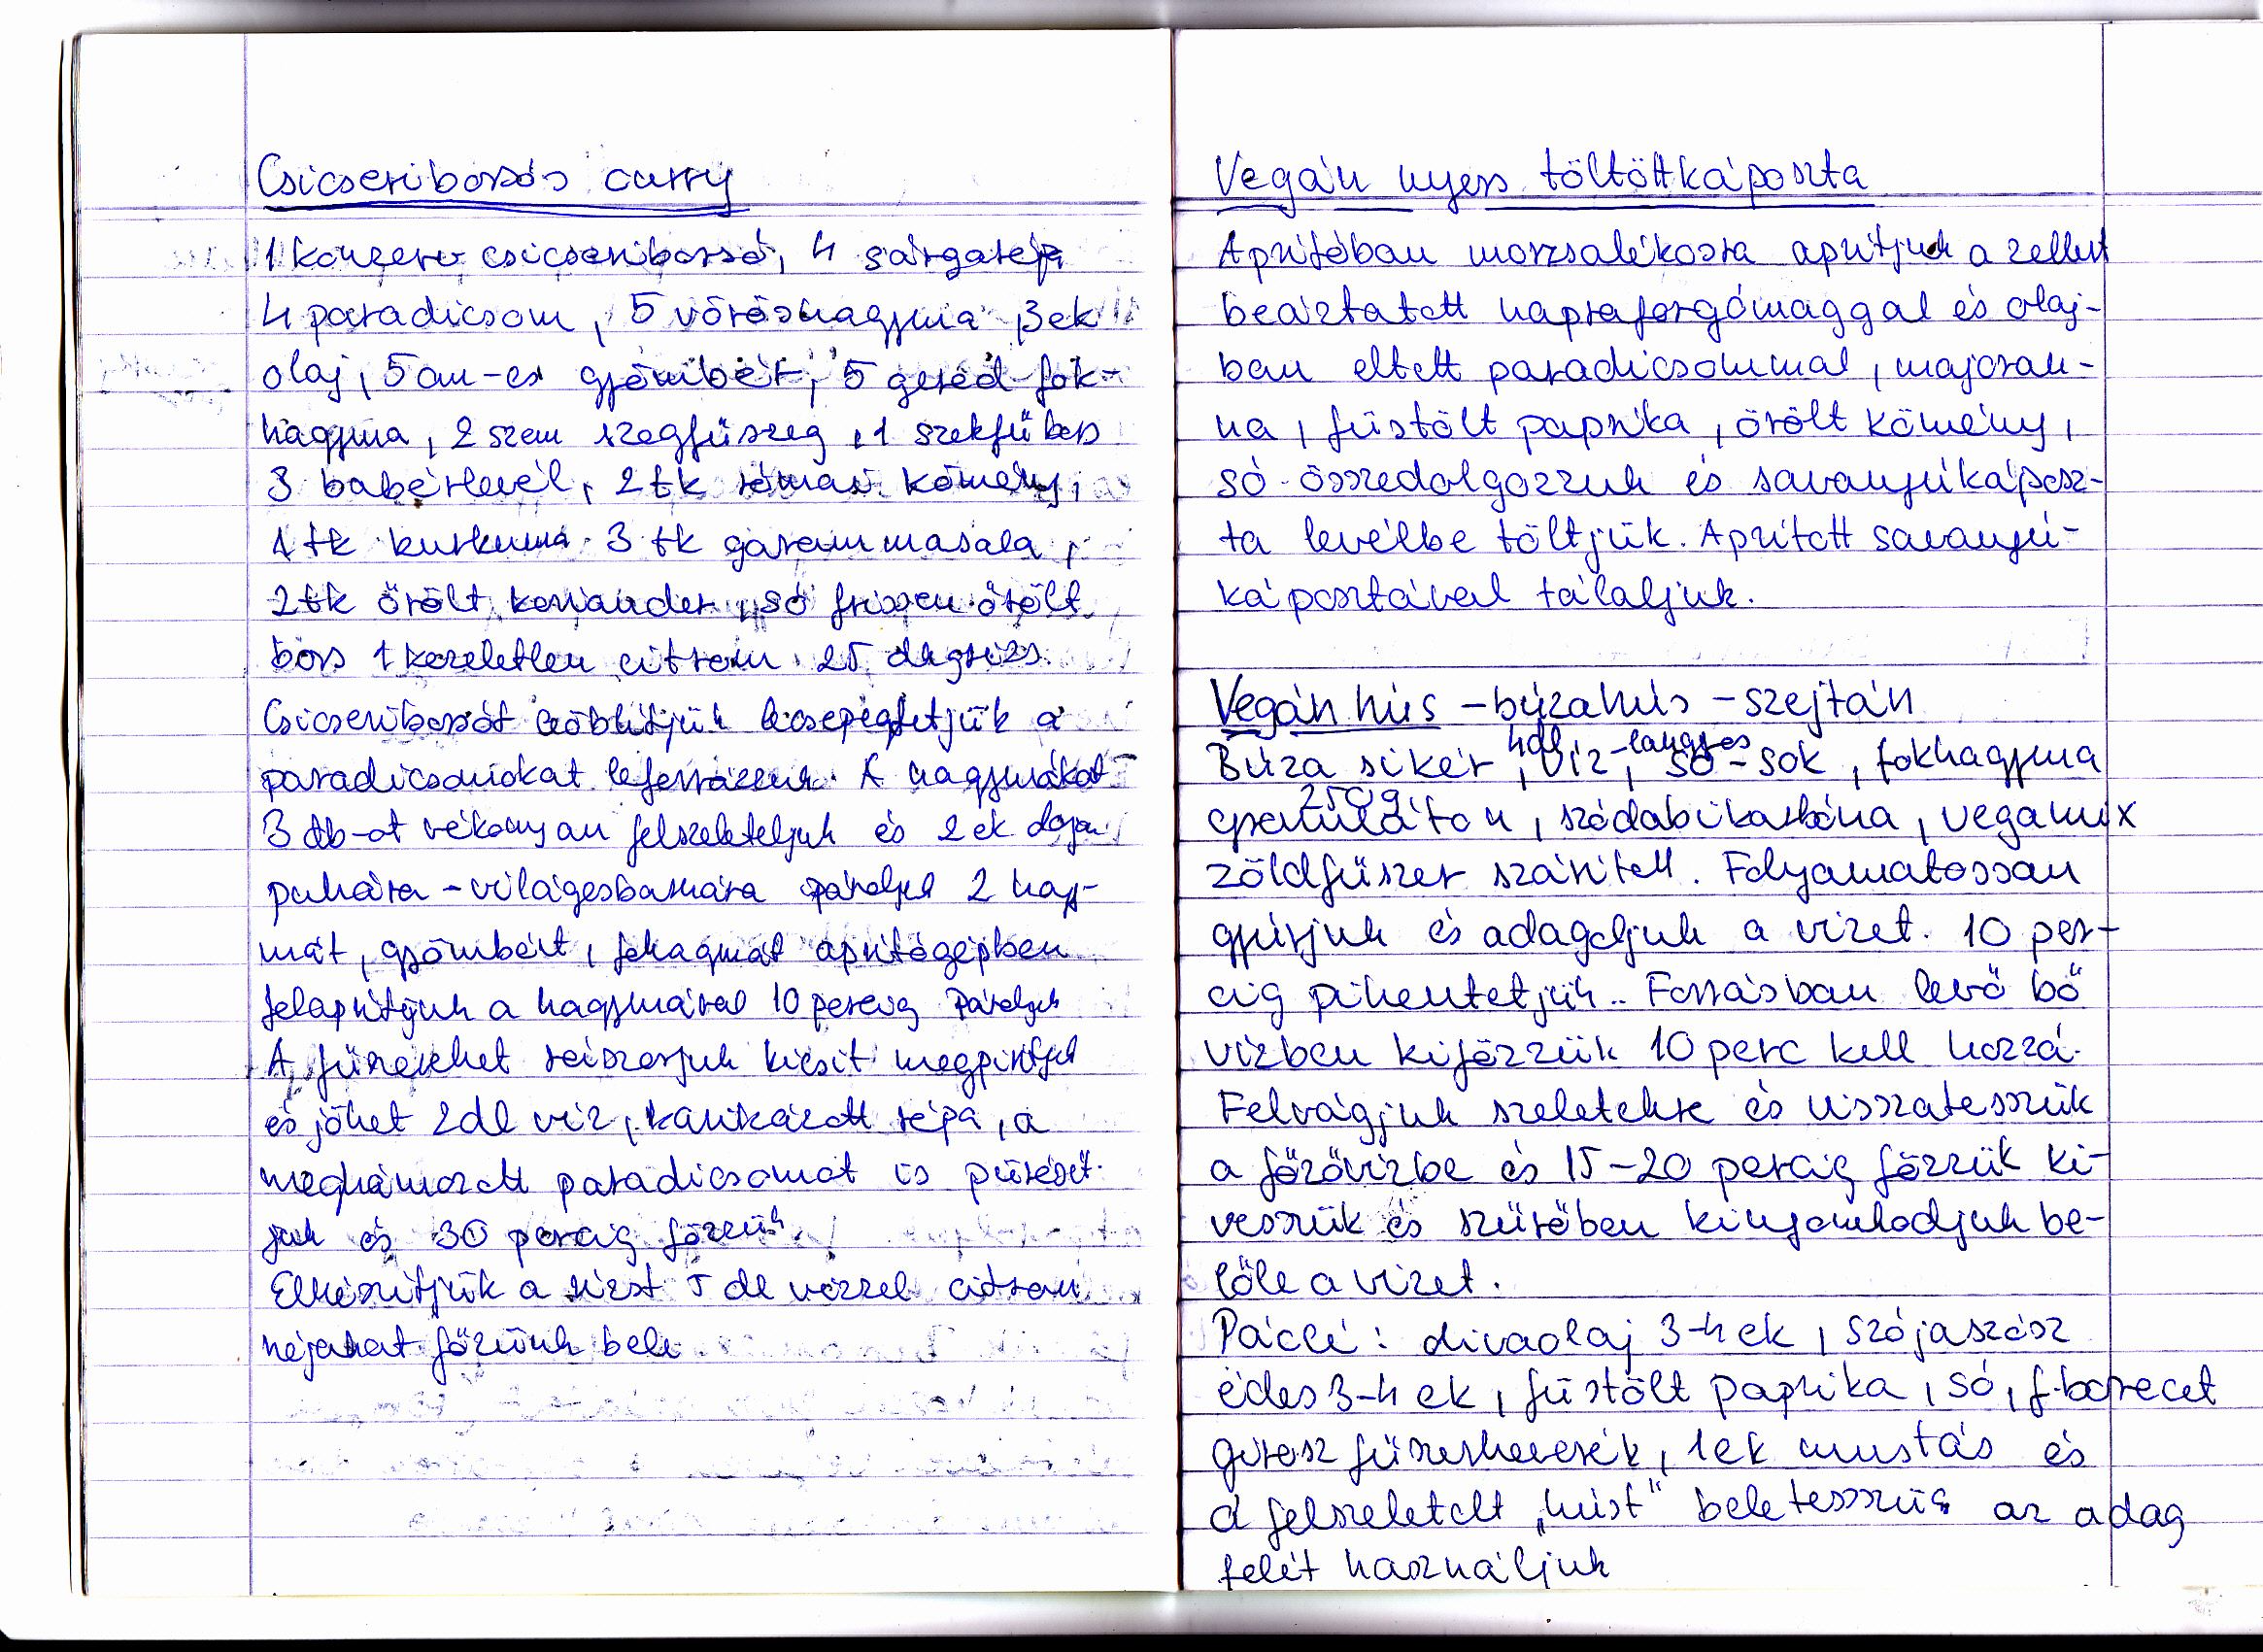 Csicseriborsós curry
1 konzerv csicseriborsó, 4 sárgarépa
4 paradicsom, 5 vöröshagyma, 3 ek
olaj, 5 cm-es gyömbér, 5 gerezd fok-
hagyma, 2 szem szegfűszeg, 1 szekfűbors
3 babérlevél, 2 tk római kömény,
1 tk kurkuma 3 tk garam masala,
2 tk őrölt koriander, só frissen őrölt
bors 1 kezeletlen citrom 25 dkg rizs.
Csicseriborsót leöblítjük lecsepegtetjük a
paradicsomokat leforrázzuk. A hagymákat
3 db-ot vékonyan felszeleteljük és 2 ek olajon
puhára - világosbarnára pároljuk 2 hagy-
mát, gyömbért, fokhagymát aprítógépben
felaprítjuk a hagymával 10 percig pároljuk
A fűszereket rászórjuk kicsit megpirítjuk
és jöhet 2dl víz, karikázott répa, a
meghámozott paradicsomot is pürésít-
juk és 30 percig főzzük.
Elkészítjük a rizst 5 dl vízzel citrom
héjakat főzünk bele
Vegán nyers töltöttkáposzta
Aprítóban morzsalékosra aprítjuk a zellert
beáztatott napraforgómaggal és olaj-
ban eltett paradicsommal, majoran-
na, füstölt paprika, őrölt kömény,
só - összedolgozzuk és savanyúkáposz-
ta levélbe töltjük. Aprított savanyú-
káposztával tálaljuk.
Vegán hús - búzahús - szejtán
4dl - langyos
Búza sikér, víz, só - sok, fokhagyma
250 g
granulátum, szódabikarbóna, vegamix
zöldfűszer szárított. Folyamatossan
gyúrjuk és adagoljuk a vizet. 10 per-
cig pihentetjük.. Forrásban levő bő
vízben kifőzzük 10 perc kell hozzá.
Felvágjuk szeletekre és visszatesszük
a főzővízbe és 15-20 percig főzzük ki-
vesszük és szűrőben kinyomkodjuk be-
lőle a vizet.
Páclé: olivaolaj 3-4 ek, szójaszósz
édes 3-4 ek, füstölt paprika, só, f. borecet
görösz fűszerkeverék, 1 ek mustás és
a felszeletelt "húst" beletesszük az adag
felét használjuk